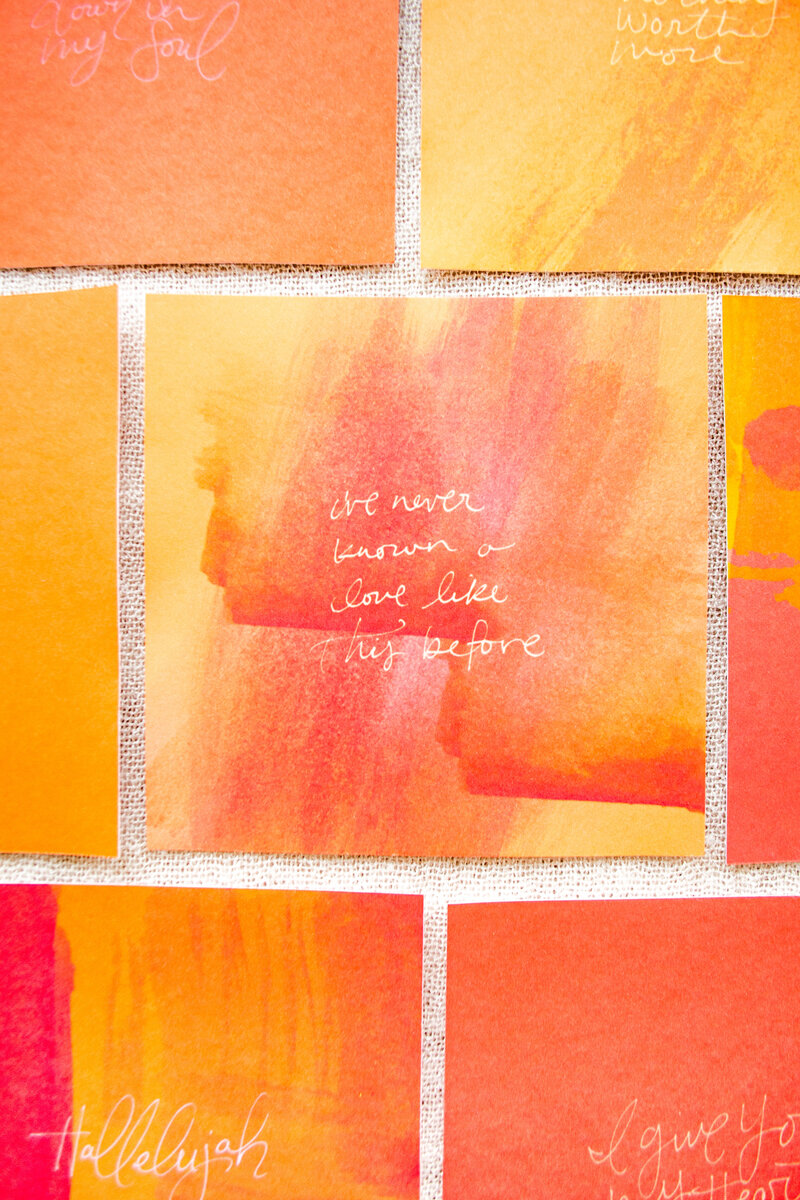 my Soul
Worth
more
i've never
known a
love like
this before
Hallelujah
I give Yo